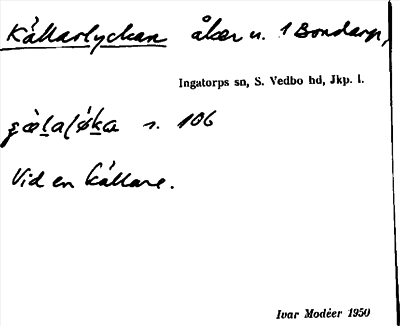 Källarlyckan åker n. 1 Bondarp,
Ingatorps sn, S. Vedbo hd, Jkp. l.
s. 106
Vid en källare.
Ivar Modéer 1950